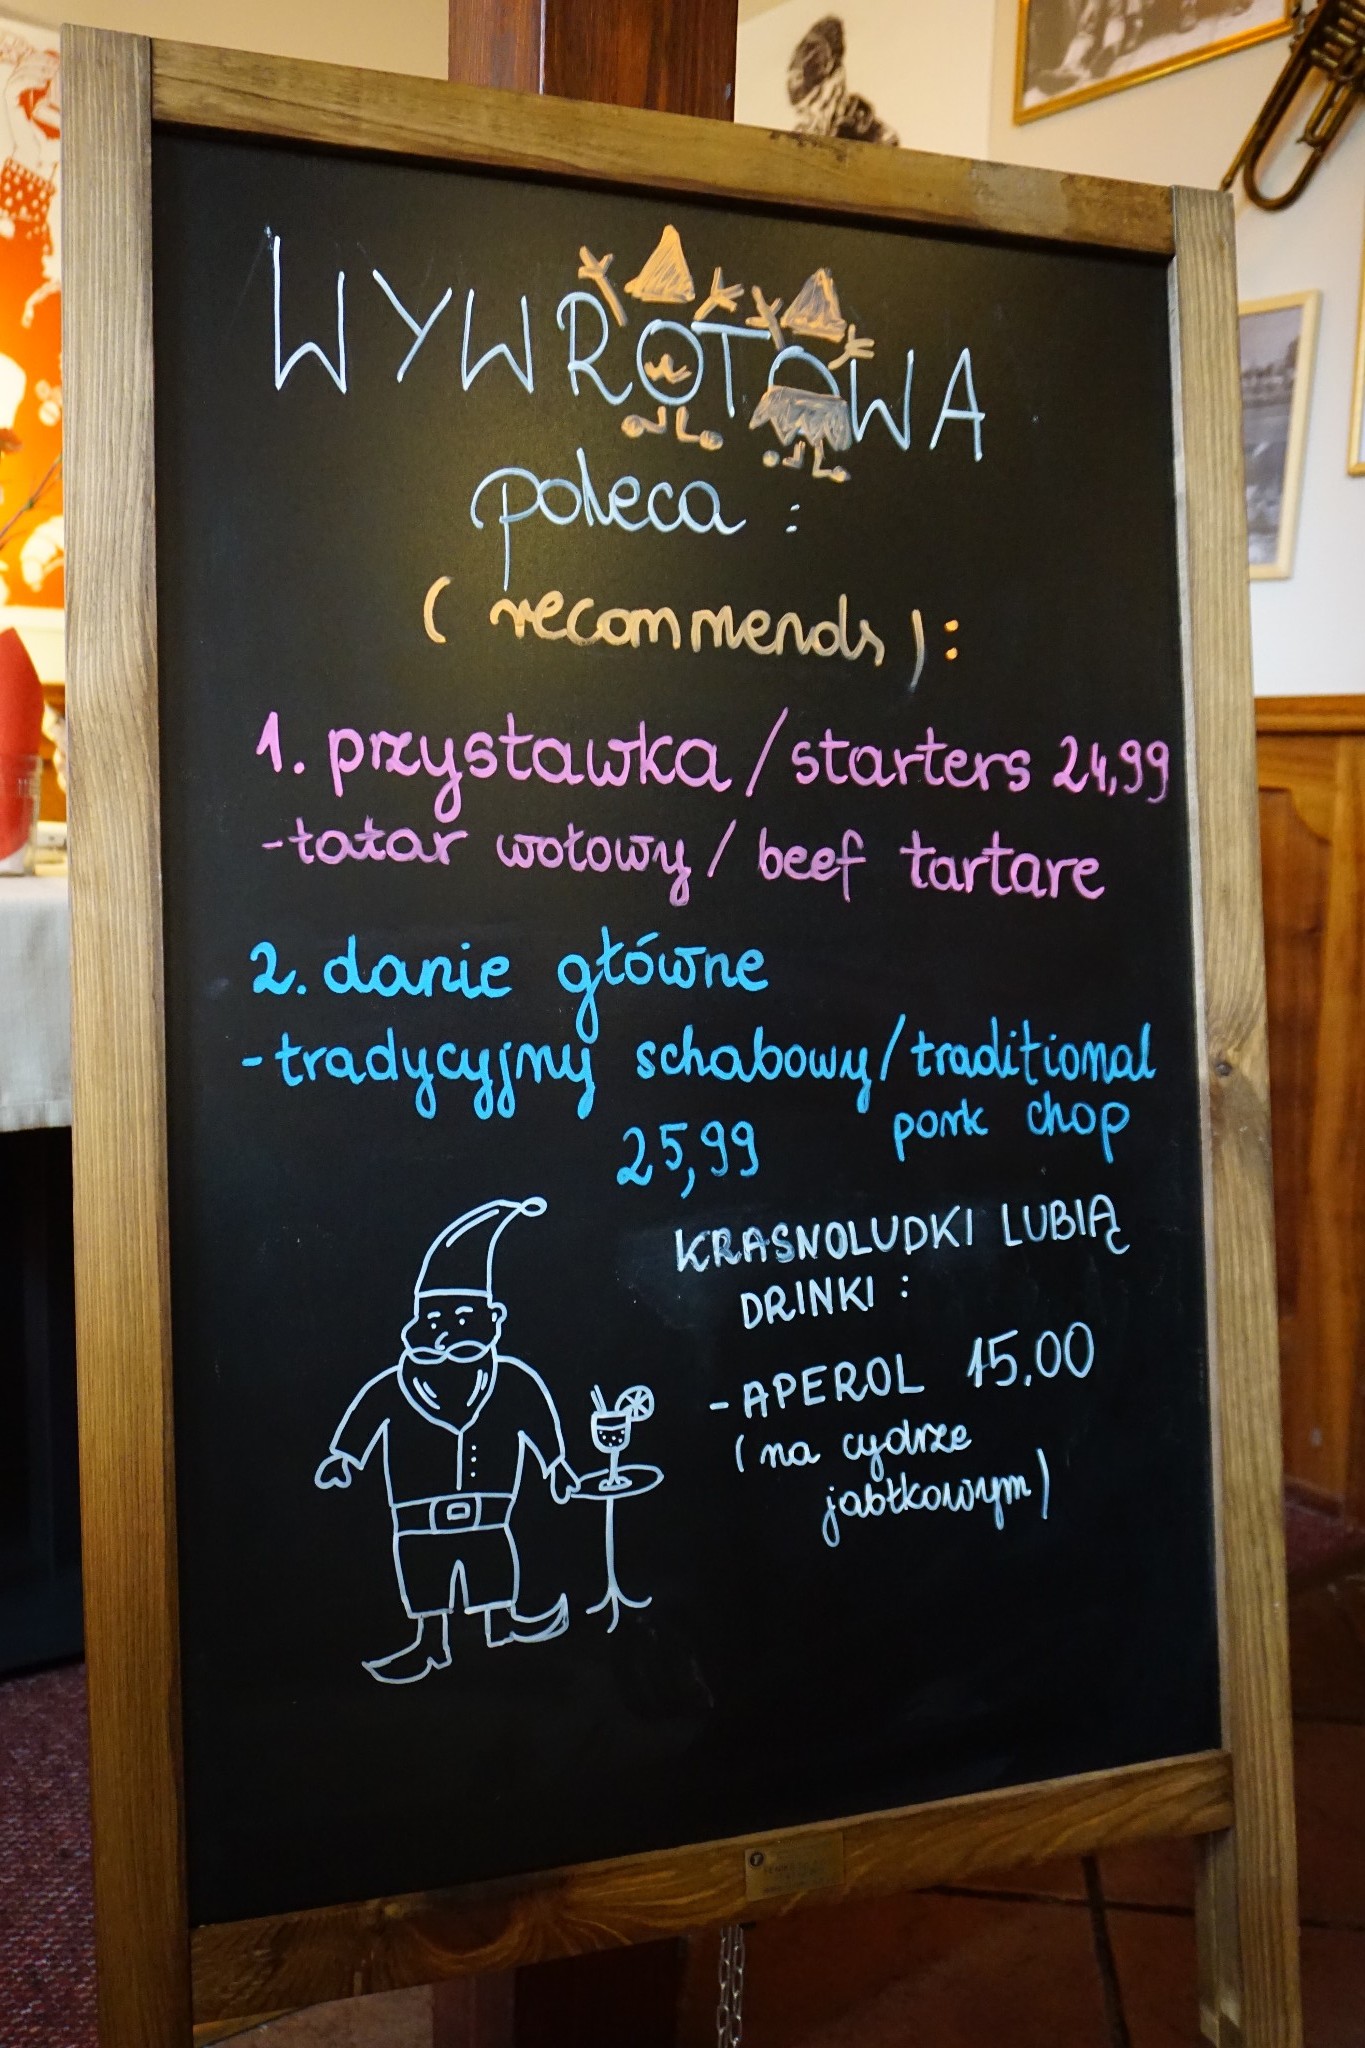 WYWROTOWA
poleca :
( recommends ) :
1. przystawka / starters 24,99
- tatar wołowy / beef tartare
2. danie główne
- tradycyjny schabowy / traditional
pork chop
25,99
KRASNOLUDKI LUBIĄ
DRINKI :
- APEROL 15.00
( na cydrze
jabłkowym )